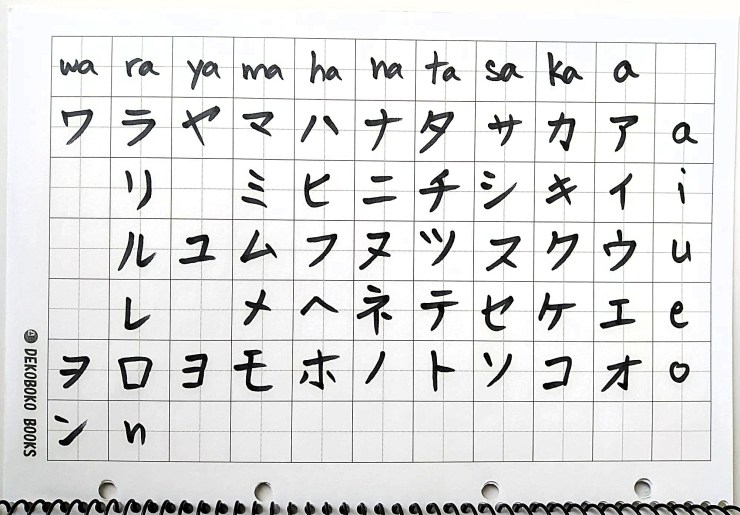 wa ra ya ma ha na ta sa ka a
ワ ラ ヤ マ ハ ナ タ サ カ ア a
リ ミ ヒ ニ チ シ キ イ i
ル ユ ム フ ヌ ツ ス ク ウ u
レ メ ヘ ネ テ セ ケ エ e
ヲ ロ ヨ モ ホ ノ ト ソ コ オ o
ン n
DEKOBOKO BOOKS